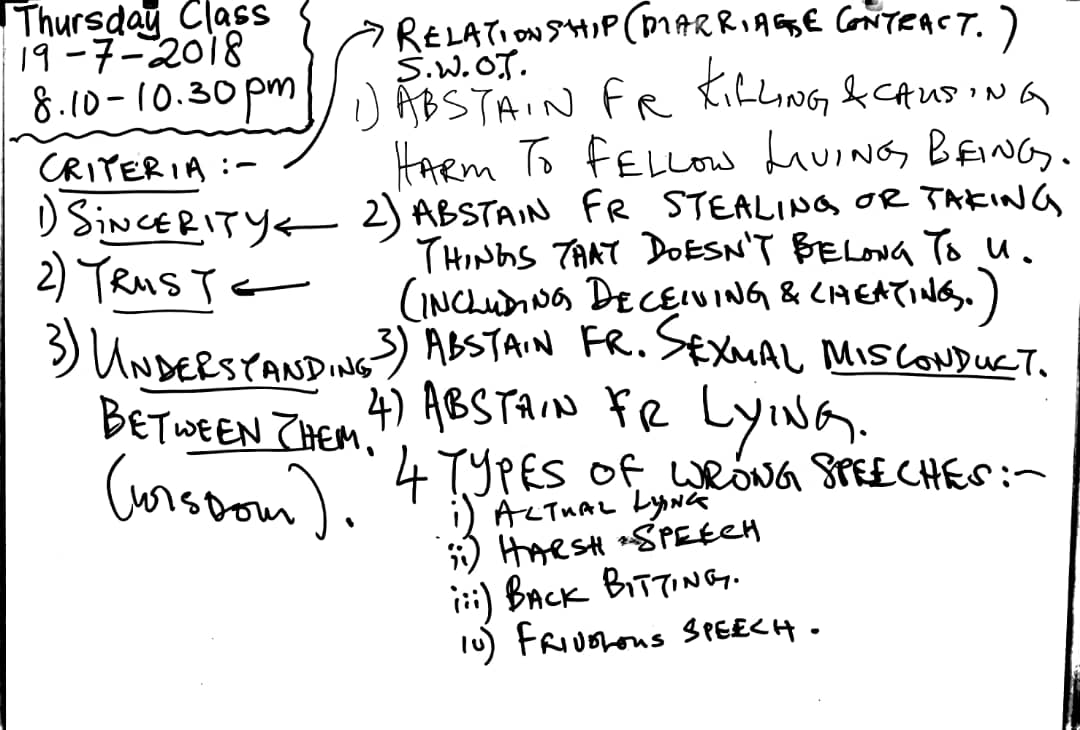 Thursday Class
19-7-2018
8.10-10.30pm
CRITERIA :-
1) SINCERITY ←
2) TRUST ←
3) UNDERSTANDING
BETWEEN THEM.
(WISDOM).
→ RELATIONSHIP (MARRIAGE CONTRACT.)
S.W.O.T.
1) ABSTAIN FR KILLING & CAUSING
HARM TO FELLOW LIVING BEINGS.
2) ABSTAIN FR STEALING OR TAKING
THINGS THAT DOESN'T BELONG TO U.
(INCLUDING DECEIVING & CHEATING.)
3) ABSTAIN FR. SEXUAL MISCONDUCT.
4) ABSTAIN FR LYING.
4 TYPES OF WRONG SPEECHES :-
i) ACTUAL LYING
ii) HARSH SPEECH
iii) BACK BITTING.
iv) FRIVOLOUS SPEECH.